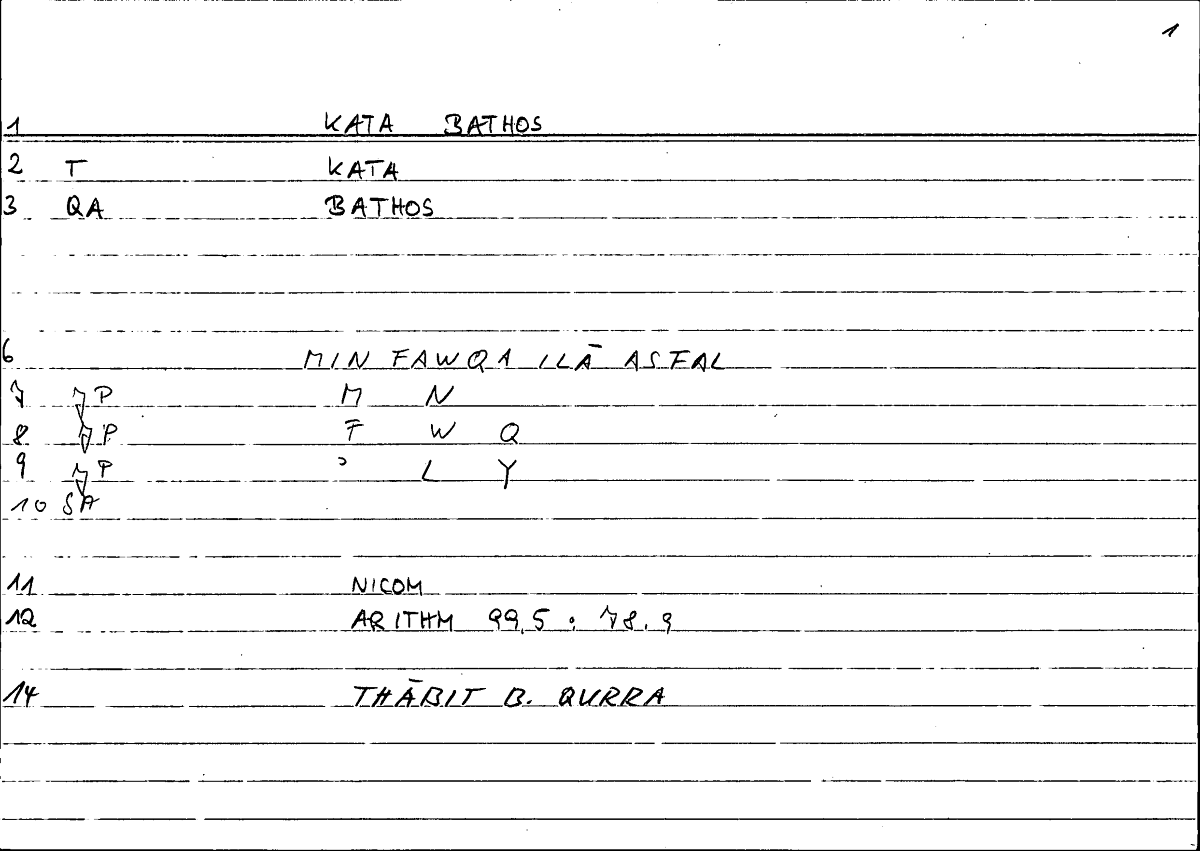 1
1 KATA BATHOS
2 T KATA
3 QA BATHOS
6 MIN FAWQA ILĀ ASFAL
7 P M N
8 P F W Q
9 P ʾ L Y
10 SA
11 NICOM
12 ARITHM 99,5 : 78.9
14 THĀBIT B. QURRA